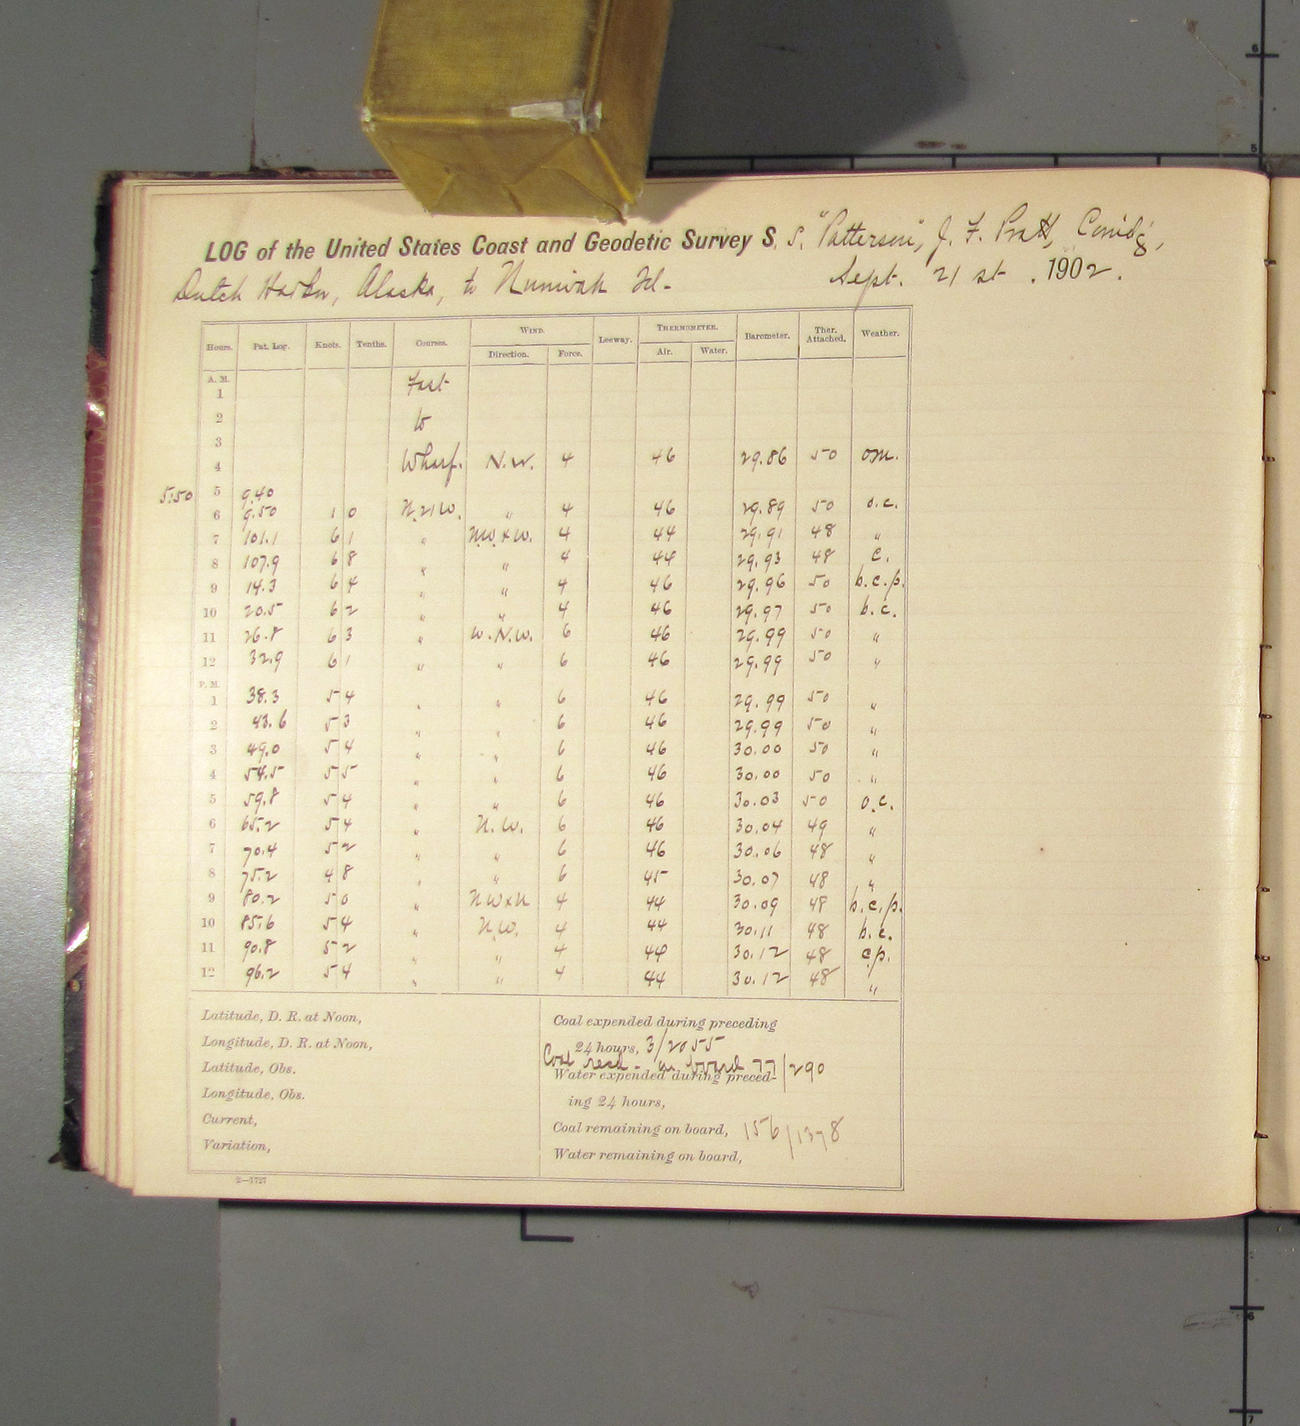 LOG of the United States Coast and Geodetic Survey S. S. "Patterson", J. F. Pratt, Comd'g,
Dutch Harbor, Alaska, to Nunivak Id. Sept. 21 st. 1902.
Hours. Pat. Log. Knots. Tenths. Courses. WIND. Leeway. THERMOMETER. Barometer. Ther. Attached. Weather.
Direction. Force. Air. Water.
A. M.
1 Fast
2 to
3
4 Wharf. N.W. 4 46 29.86 50 o.m.
5.50 5 9.40
6 9.50 1 0 N.21W. " 4 46 29.89 50 o.c.
7 101.1 6 1 " N.W.xW. 4 44 29.91 48 "
8 107.9 6 8 " " 4 44 29.93 48 c.
9 14.3 6 4 " " 4 46 29.96 50 b.c.p.
10 20.5 6 2 " " 4 46 29.97 50 b.c.
11 26.8 6 3 " W.N.W. 6 46 29.99 50 "
12 32.9 6 1 " " 6 46 29.99 50 "
P. M.
1 38.3 5 4 " " 6 46 29.99 50 "
2 43.6 5 3 " " 6 46 29.99 50 "
3 49.0 5 4 " " 6 46 30.00 50 "
4 54.5 5 5 " " 6 46 30.00 50 "
5 59.8 5 4 " " 6 46 30.03 50 o.c.
6 65.2 5 4 " N.W. 6 46 30.04 49 "
7 70.4 5 2 " " 6 46 30.06 48 "
8 75.2 4 8 " " 6 45 30.07 48 "
9 80.2 5 0 " NWxN 4 44 30.09 48 b.c.p.
10 85.6 5 4 " N.W. 4 44 30.11 48 b.c.
11 90.8 5 2 " " 4 44 30.12 48 c.p.
12 96.2 5 4 " " 4 44 30.12 48 "
Latitude, D. R. at Noon,
Longitude, D. R. at Noon,
Latitude, Obs.
Longitude, Obs.
Current,
Variation,
Coal expended during preceding
24 hours, 3/2055
Coal recd. on board 77/290
Water expended during preced-
ing 24 hours,
Coal remaining on board, 156/1378
Water remaining on board,
2—1727
6
5
6
7